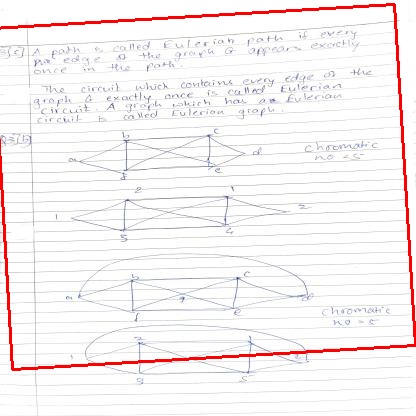 A path is called Eulerian path if every
edge of the graph G appears exactly
once in the path.
The circuit which contains every edge of the
graph G exactly once is called Eulerian
circuit. A graph which has an Eulerian
circuit is called Eulerian graph.
b c
a d
f e
Chromatic
no = 5
2 1
1 2
5 4
b c
a g d
f e
Chromatic
no = 5